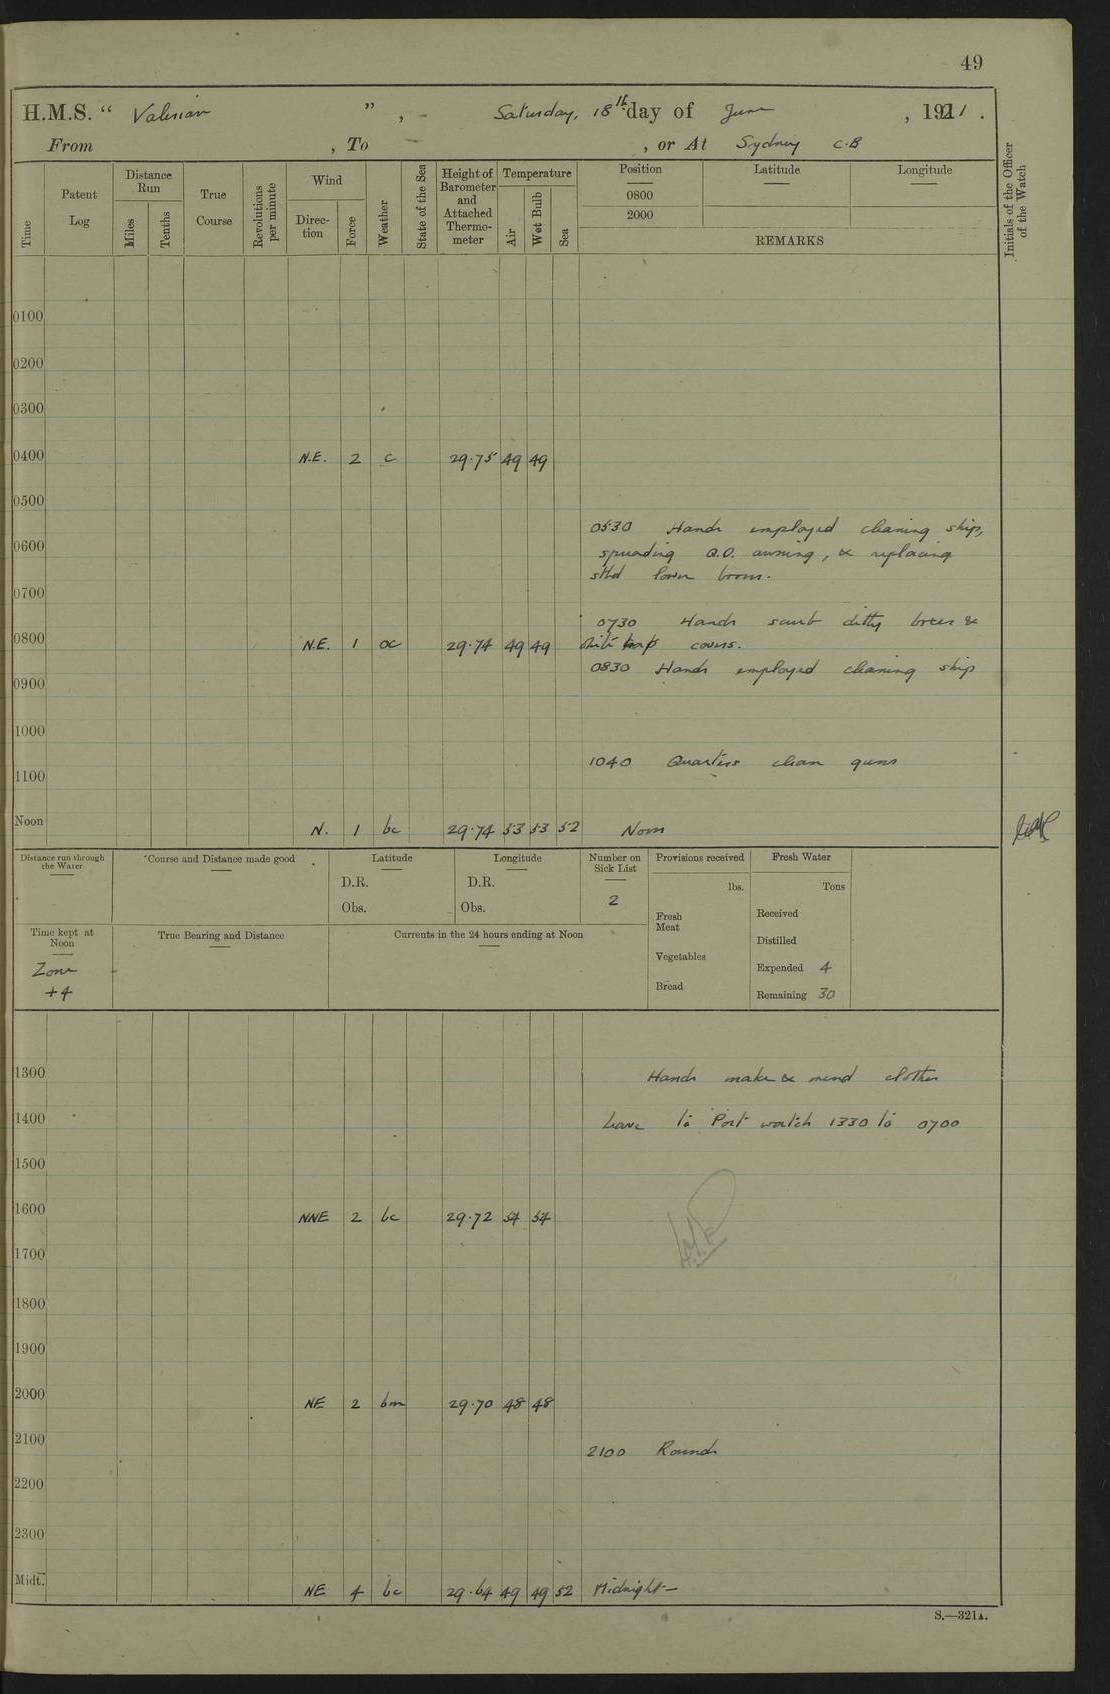 49
H.M.S. “ Valerian ” , - Saturday, 18th day of June , 1921 .
From , To — , or At Sydney C.B
Time
Patent Log
Distance Run
Miles
Tenths
True Course
Revolutions per minute
Wind
Direction
Force
Weather
State of the Sea
Height of Barometer and Attached Thermometer
Temperature
Air
Wet Bulb
Sea
Position
0800
2000
Latitude
Longitude
REMARKS
Initials of the Officer of the Watch
0100
0200
0300
0400 N.E. 2 c 29.75 49 49
0500
0530 Hands employed cleaning ship,
0600 spreading Q.D. awning, & replacing
stbd lower boom.
0700
0730 Hands scrub ditty boxes &
0800 N.E. 1 oc 29.74 49 49 white cap covers.
0830 Hands employed cleaning ship
0900
1000
1040 Quarters clean guns
1100
Noon N. 1 bc 29.74 53 53 52 Noon
Distance run through the Water
Course and Distance made good
Latitude
D.R.
Obs.
Longitude
D.R.
Obs.
Number on Sick List
2
Provisions received
lbs.
Fresh Meat
Vegetables
Bread
Fresh Water
Tons
Received
Distilled
Expended 4
Remaining 30
Time kept at Noon
Zone
+4
True Bearing and Distance
Currents in the 24 hours ending at Noon
1300 Hands make & mend clothes
1400 Leave to Port watch 1330 to 0700
1500
1600 NNE 2 bc 29.72 54 54
1700
1800
1900
2000 NE 2 bm 29.70 48 48
2100 2100 Rounds
2200
2300
Midt. NE 4 bc 29.64 49 49 52 Midnight—
S.—321A.